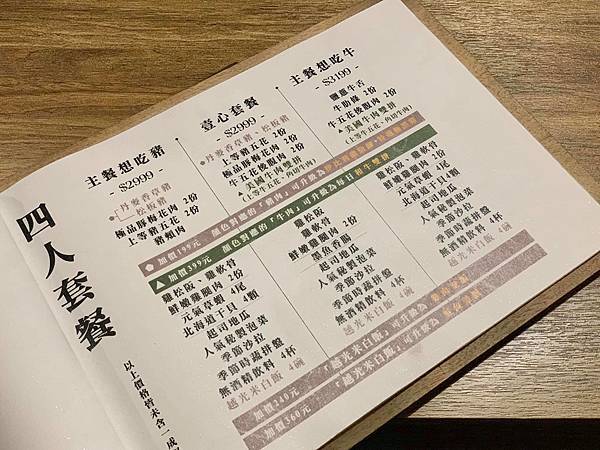 四人套餐
以上價格皆未含一成
主餐想吃豬
- $2999 -
丹麥香草豬、
松板豬
極品豚梅花肉 2份
上等豬五花 2份
豬頰肉
壹心套餐
- $2999 -
丹麥香草豬、松板豬
上等豬五花 2份
極品豚梅花肉 2份
牛五花後腹肉 2份
▲美國牛肉雙拼
(上等牛五花、角切牛肉)
主餐想吃牛
- $3199 -
鹽蔥牛舌
牛肋條 2份
牛五花後腹肉 2份
▲美國牛肉雙拼
(上等牛五花、角切牛肉)
加價199元 顏色對應的「豬肉」可升級為
▲加價399元 顏色對應的「牛肉」可升級為每日 和牛雙拼
雞松阪、雞軟骨
鮮嫩雞腿肉 2份
元氣草蝦 4尾
北海道干貝 4顆
起司地瓜
人氣秘製泡菜
季節沙拉
季節時蔬拼盤
無酒精飲料 4杯
越光米白飯 4碗
雞松阪
鮮嫩雞腿肉 2份
墨魚香腸
起司地瓜
人氣秘製泡菜
季節沙拉
季節時蔬拼盤
無酒精飲料 4杯
越光米白飯 4碗
雞松阪、雞軟骨
鮮嫩雞腿肉 2份
元氣草蝦 4尾
北海道干貝 4顆
人氣秘製泡菜
季節沙拉
季節時蔬拼盤
無酒精飲料 4杯
越光米白飯 4碗
加價240元 「越光米白飯」可升級為
加價360元 「越光米白飯」可升級為